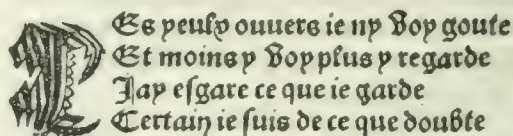 LEs yeulx ouuers ie ny voy goute
Et moins y voy plus y regarde
Jay esgare ce que ie garde
Certain ie suis de ce que doubte